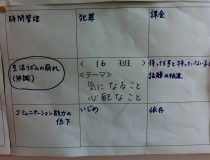 時間管理
犯罪
課金
生活リズムの崩れ
(体調)
( 16 班 )
<テーマ>
気になること
心配なこと
持ってる子と持っていない子の
話題の相違
コミュニケーション能力の
低下
いじめ
依存